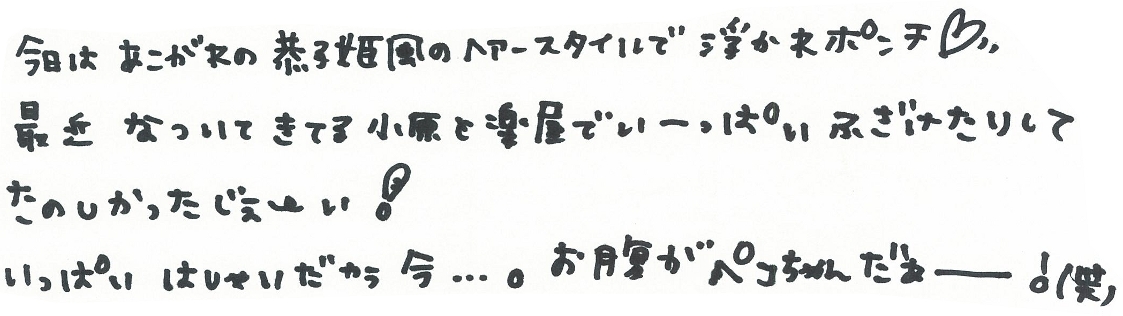 今日は あこがれの 恭子姫風のヘアースタイルで 浮かれポンチ♡,,
最近 なついてきてる小原と楽屋でいーっぱい ふざけたりして
たのしかったじぇーい!
いっぱい はしゃいだから 今…。お腹がペコちゃんだぁ――!(笑)